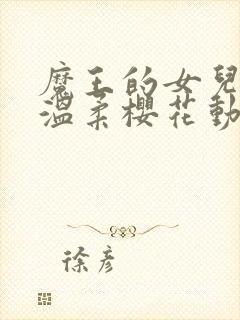 魔王的女兒
溫柔櫻花動
徐彥